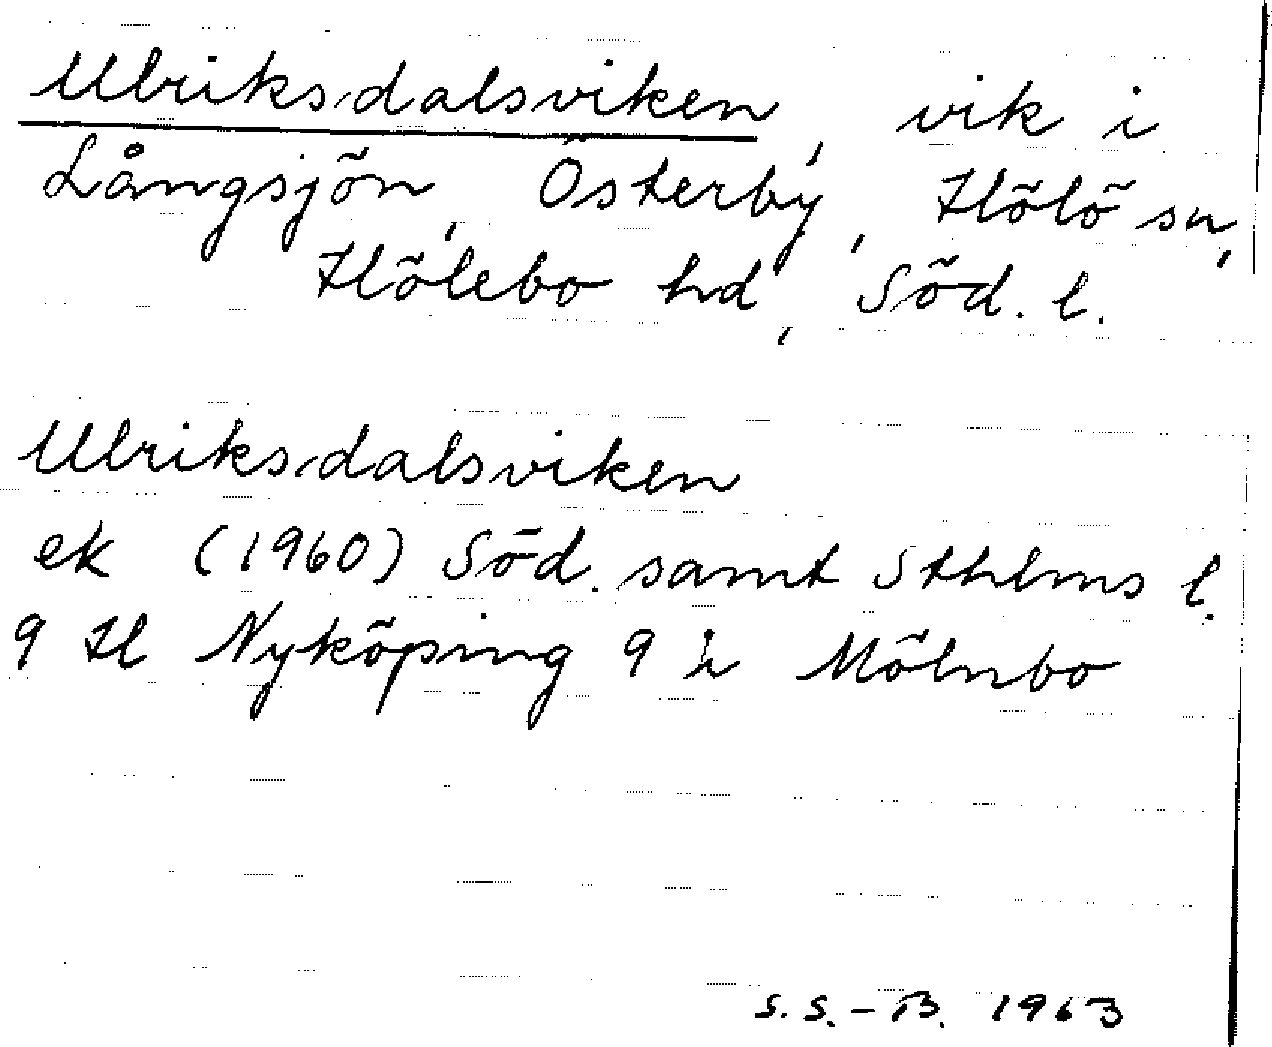 Ulriksdalsviken, vik i
Långsjön, Österby, Hölö sn,
Hölebo hd, Söd. l.
Ulriksdalsviken
ek (1960) Söd. samt Sthlms l.
9 H Nyköping 9 i Mölnbo
S.S.-B. 1963